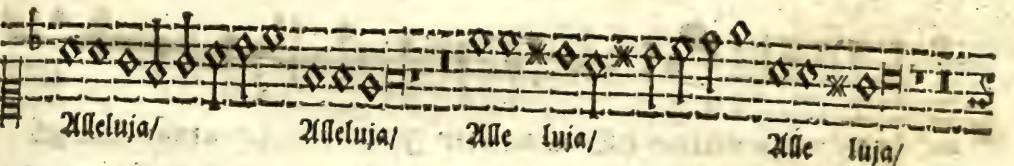 Alleluja/ Alleluja/ Alle luja/ Alle luja/